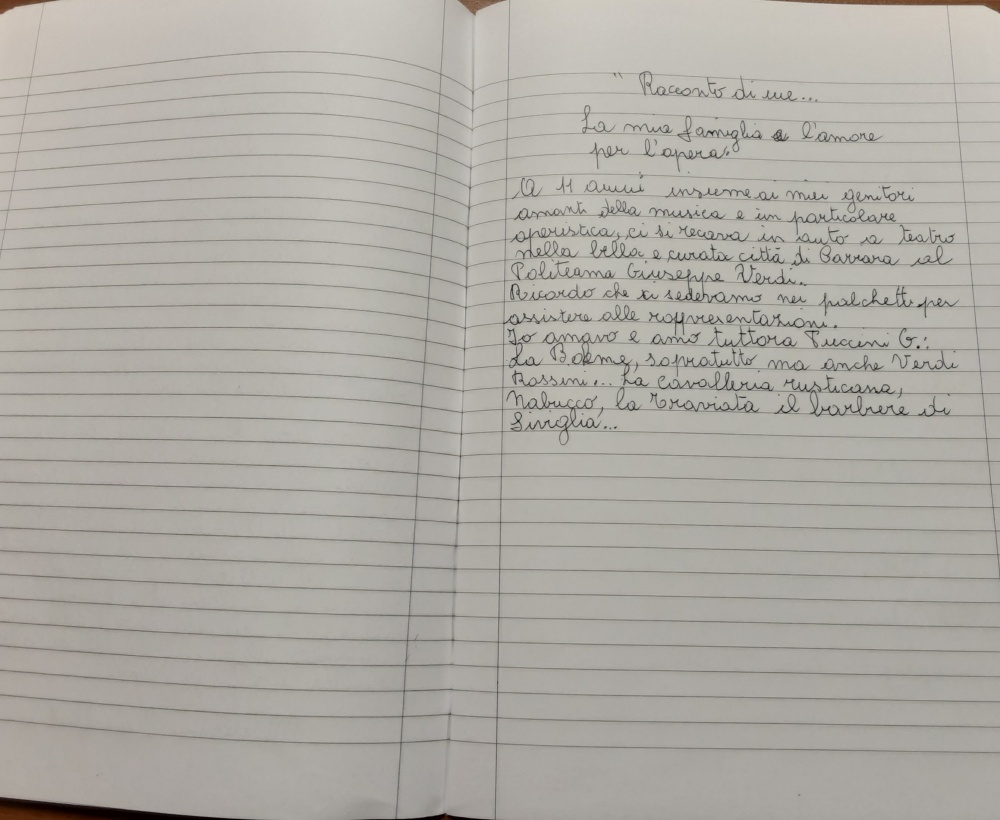 " Racconto di me...
La mia famiglia e l'amore
per l'opera"
A 11 anni insieme ai miei genitori
amanti della musica e in particolare
operistica, ci si recava in auto a teatro
nella bella e curata città di Carrara al
Politeama Giuseppe Verdi.
Ricordo che ci sedevamo nei palchetti per
assistere alle rappresentazioni.
Io amavo e amo tuttora Puccini G.:
La Boème, sopratutto ma anche Verdi
Rossini... La cavalleria rusticana,
Nabucco, la Traviata il barbiere di
Siviglia...